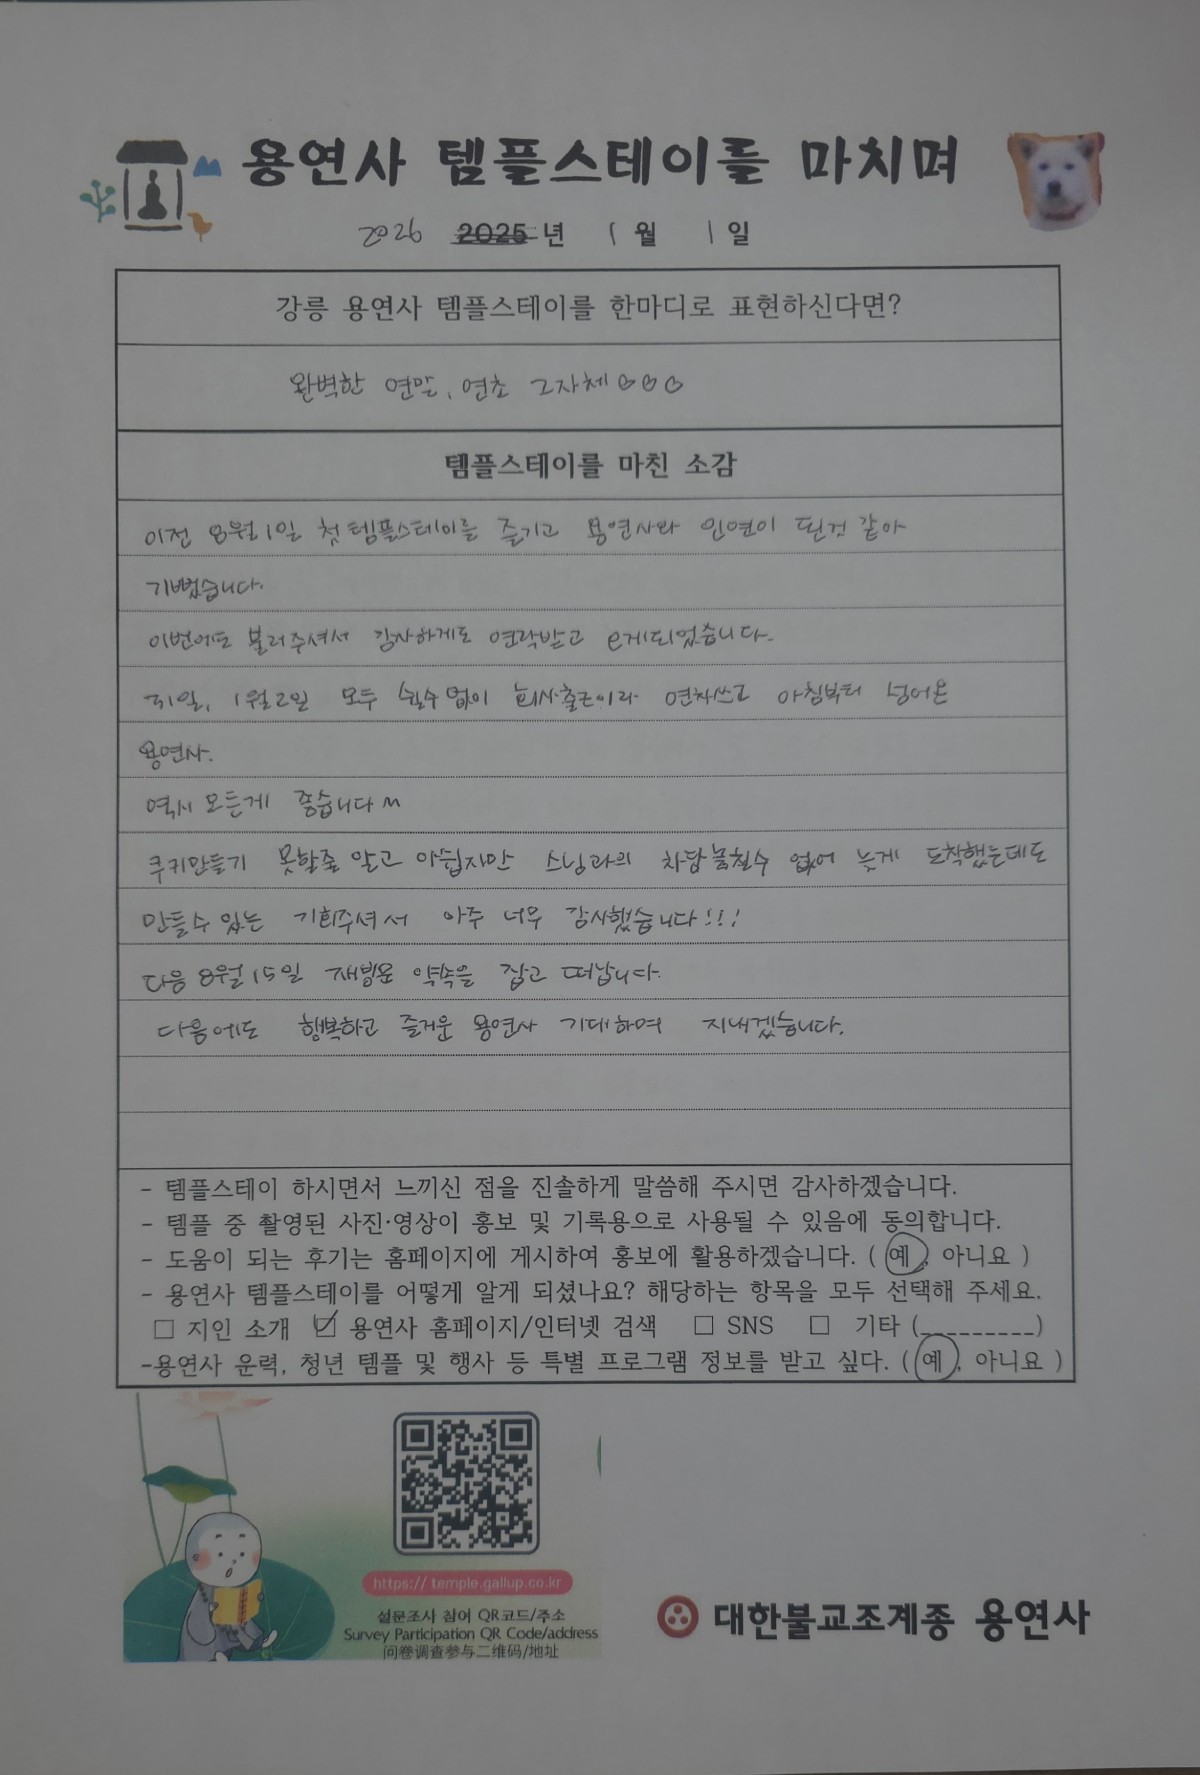 용연사 템플스테이를 마치며
2026 2025년 1월 1일
강릉 용연사 템플스테이를 한마디로 표현하신다면?
완벽한 연말, 연초 그자체♡♡♡
템플스테이를 마친 소감
이전 8월1일 첫템플스테이를 즐기고 용연사와 인연이 된것 같아
기뻤습니다.
이번에도 불러주셔서 감사하게도 연락받고 오게되었습니다.
31일, 1월2일 모두 쉴수없이 회사출근이라 연차쓰고 아침부터 넘어온
용연사.
역시 모든게 좋습니다
쿠키만들기 못할줄 알고 아쉽지만 스님과의 차담 놓칠수 없어 늦게 도착했는데도
만들수 있는 기회주셔서 아주 너무 감사했습니다!!!
다음 8월15일 재방문 약속을 잡고 떠납니다.
다음에도 행복하고 즐거운 용연사 기대하며 지내겠습니다.
- 템플스테이 하시면서 느끼신 점을 진솔하게 말씀해 주시면 감사하겠습니다.
- 템플 중 촬영된 사진·영상이 홍보 및 기록용으로 사용될 수 있음에 동의합니다.
- 도움이 되는 후기는 홈페이지에 게시하여 홍보에 활용하겠습니다. ( 예, 아니요 )
- 용연사 템플스테이를 어떻게 알게 되셨나요? 해당하는 항목을 모두 선택해 주세요.
□ 지인 소개 ☑ 용연사 홈페이지/인터넷 검색 □ SNS □ 기타 (_________)
-용연사 운력, 청년 템플 및 행사 등 특별 프로그램 정보를 받고 싶다. ( 예, 아니요 )
https:// temple.gallup.co.kr
설문조사 참여 QR코드/주소
Survey Participation QR Code/address
问卷调查参与二维码/地址
대한불교조계종 용연사